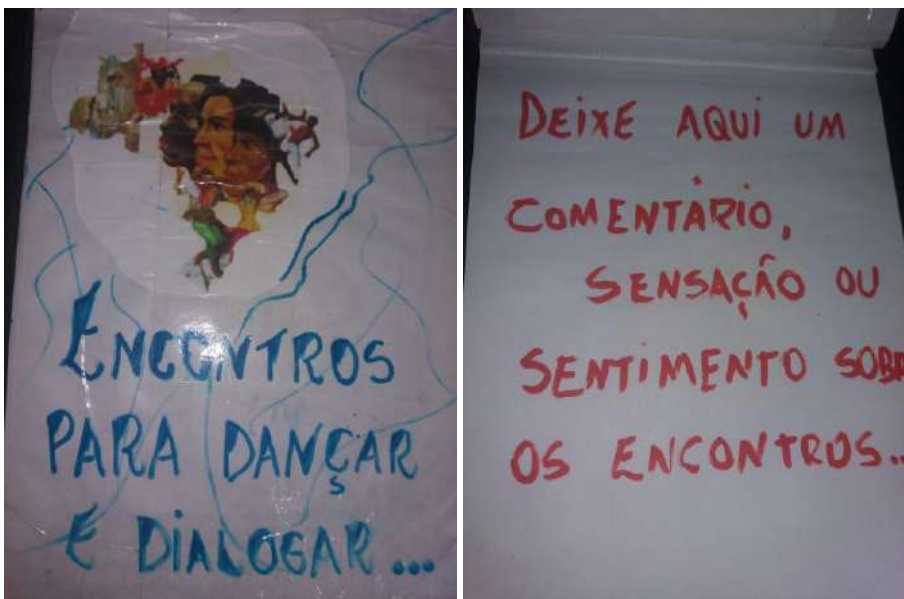 ENCONTROS
PARA DANÇAR
E DIALOGAR...
DEIXE AQUI UM
COMENTÁRIO,
SENSAÇÃO OU
SENTIMENTO SOB
OS ENCONTROS...